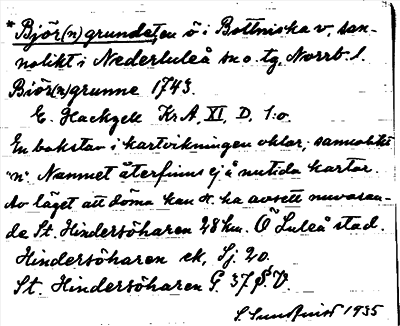 * Björ(n)grundet, en ö i Bottniska v., san-
nolikt i Nederluleå sn o. tg, Norrb. l.
Biör(n)grunne 1743.
E. Hackzell Kr.A. XI, D, 1:o.
En bokstav i kartvikningen oklar, sannolikt
"n". Namnet återfinns ej å nutida kartor.
Av läget att döma kan ha avsett nuvaran-
de St. Hindersöharen 28 km. Ö Luleå stad.
Hindersöharen ek, Sj. 20.
St. Hindersöharen G. 37 S.V.
S. Sundqvist 1935